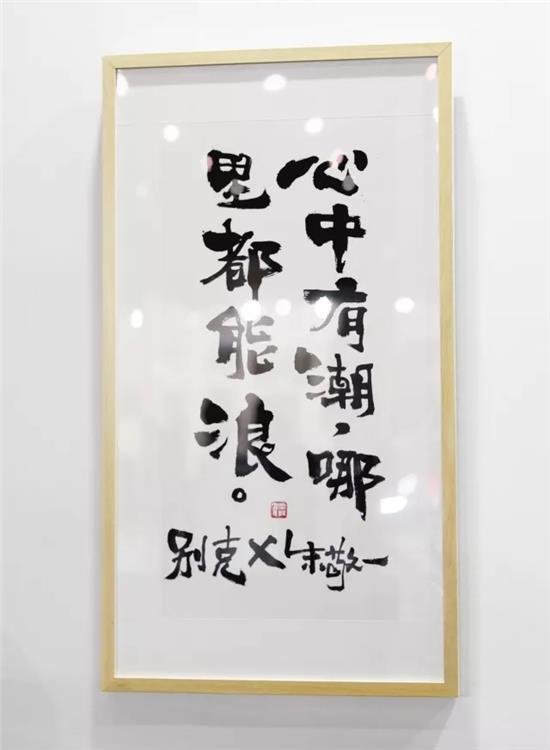 心中有潮，哪
里都能浪。
别克×朱敬一